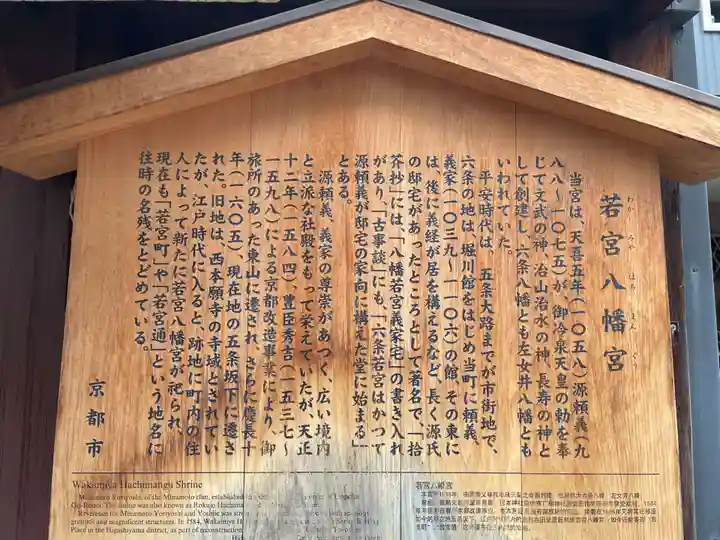 若宮八幡宮
わか みや はち まん ぐう
当宮は、天喜五年(一〇五八)源頼義(九
八八〜一〇七五)が、御冷泉天皇の勅を奉
じて文武の神、治山治水の神、長寿の神と
して創建し、六条八幡とも左女井八幡とも
いわれていた。
平安時代は、五条大路までが市街地で、
六条の地は、堀川館をはじめ当町に頼義、
義家(一〇三九〜一一〇六)の館、その東に
は、後に義経が居を構えるなど、長く源氏
の邸宅があったところとして著名で、「拾
芥抄」には、「八幡若宮義家宅」の書き入れ
があり、「古事談」にも「六条若宮はかつて
源頼義が邸宅の家向に構えた堂に始まる」
とある。
源頼義、義家の尊崇があつく、広い境内
と立派な社殿をもって栄えていたが、天正
十二年(一五八四)、豊臣秀吉(一五三七〜
一五九八)による京都改造事業により、御
旅所のあった東山に遷され、さらに慶長十
年(一六〇五)、現在地の五条坂下に遷さ
れた。旧地は、西本願寺の寺域とされてい
たが、江戸時代に入ると、跡地に町内の住
人によって新たに若宮八幡宮が祀られ、
現在も「若宮町」や「若宮通」という地名に
往時の名残をとどめている。
京都市
Wakamiya Hachimangu Shrine
Minamoto Yoriyoshi, of the Minamoto clan, established
Go-Reizei. The shrine was also known as Rokujo Hachiman
Reverence for Minamoto Yoriyoshi and Yoshiie was
grounds and magnificent structures. In 1584, Wakamiya
Place in the Higashiyama district, as part of reconstruction
若宮八幡宮